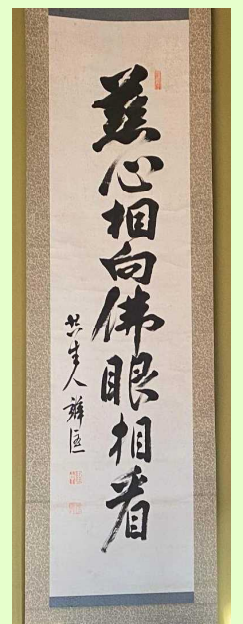 慈心相向佛眼相看
共生人辨匡